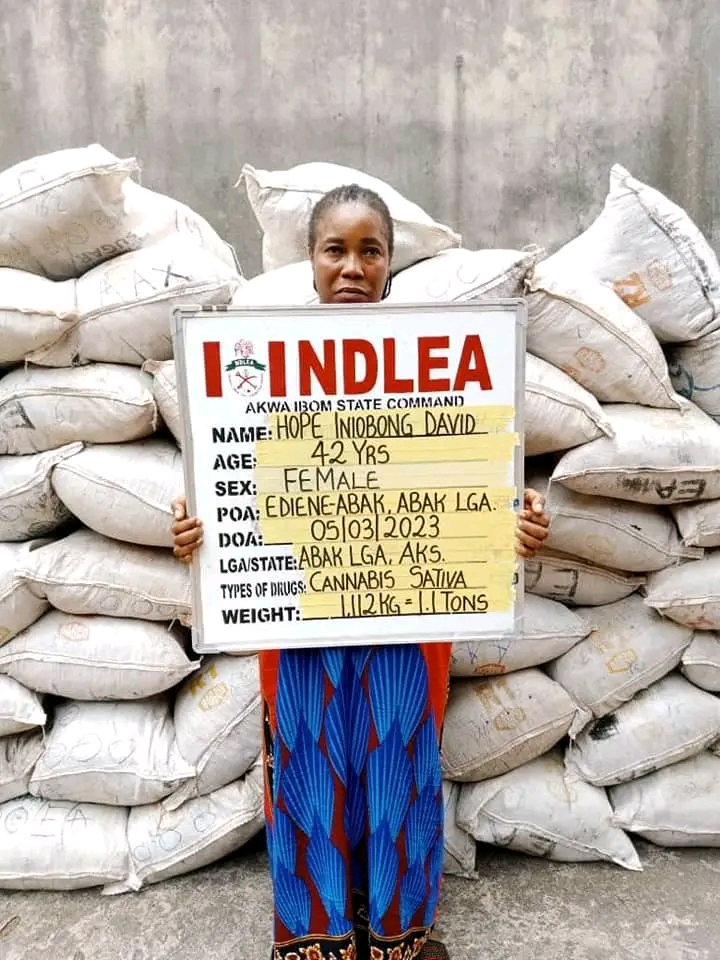 NDLEA
NDLEA
AKWA IBOM STATE COMMAND
NAME: HOPE INIOBONG DAVID
AGE: 42 YRS
SEX: FEMALE
POA: EDIENE-ABAK, ABAK LGA.
DOA: 05/03/2023
LGA/STATE: ABAK LGA, AKS.
TYPES OF DRUGS: CANNABIS SATIVA
WEIGHT: 1,112KG = 1.1 TONS